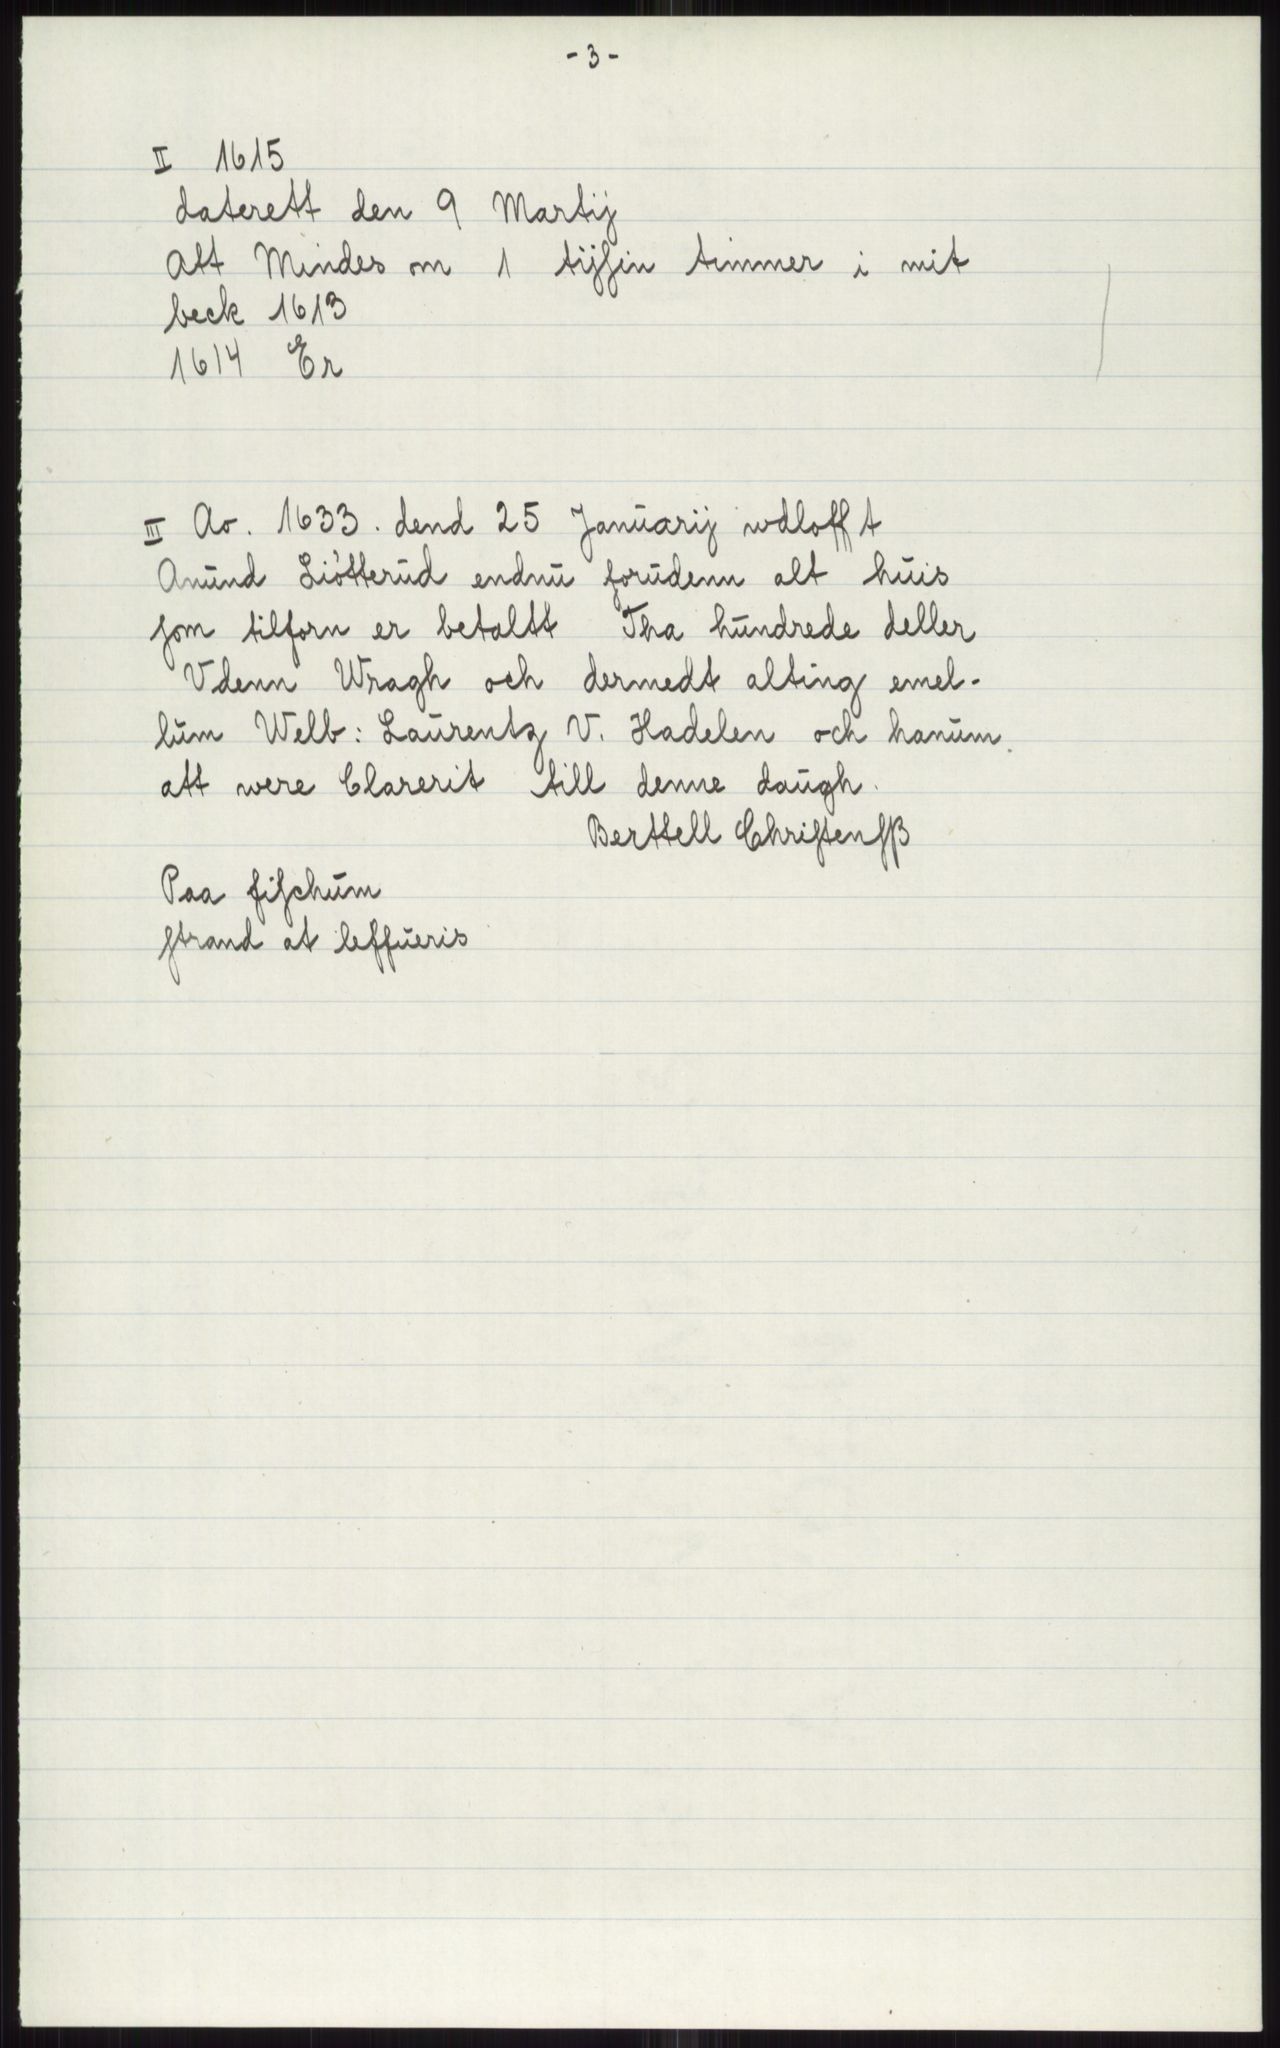 - 3 -
II 1615
daterett den 9 Martij
Att Mindes om 1 tijſin timmer i mit
beck 1613
1614 Er
III Ao. 1633. dend 25 Janŭarij wdlofft
Anŭnd Liötterŭd endnŭ forŭdenn alt hŭis
ſom tilforn er betaltt Tha hŭndrede deller
Vdenn Wragh och dermedt alting emel-
lŭm Welb: Laŭrentz V. Hadelen och hanŭm.
att were Clarerit till denne daŭgh.
Berttell Chriſtenſß
Paa fiſchŭm
ſtrand at leffŭeris